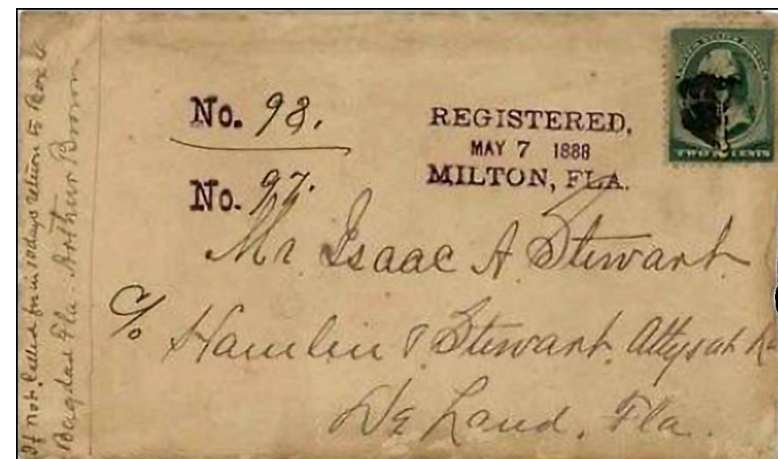 If not called for in 10 days return to Box 6
Bagdad Fla. Arthur Brown
No. 98.
REGISTERED,
MAY 7 1888
MILTON, FLA.
No. 97.
UNITED STATES POSTAGE
TWO CENTS
Mr Isaac A. Stewart
c/o Hamlin & Stewart, Attys at
De Land, Fla.